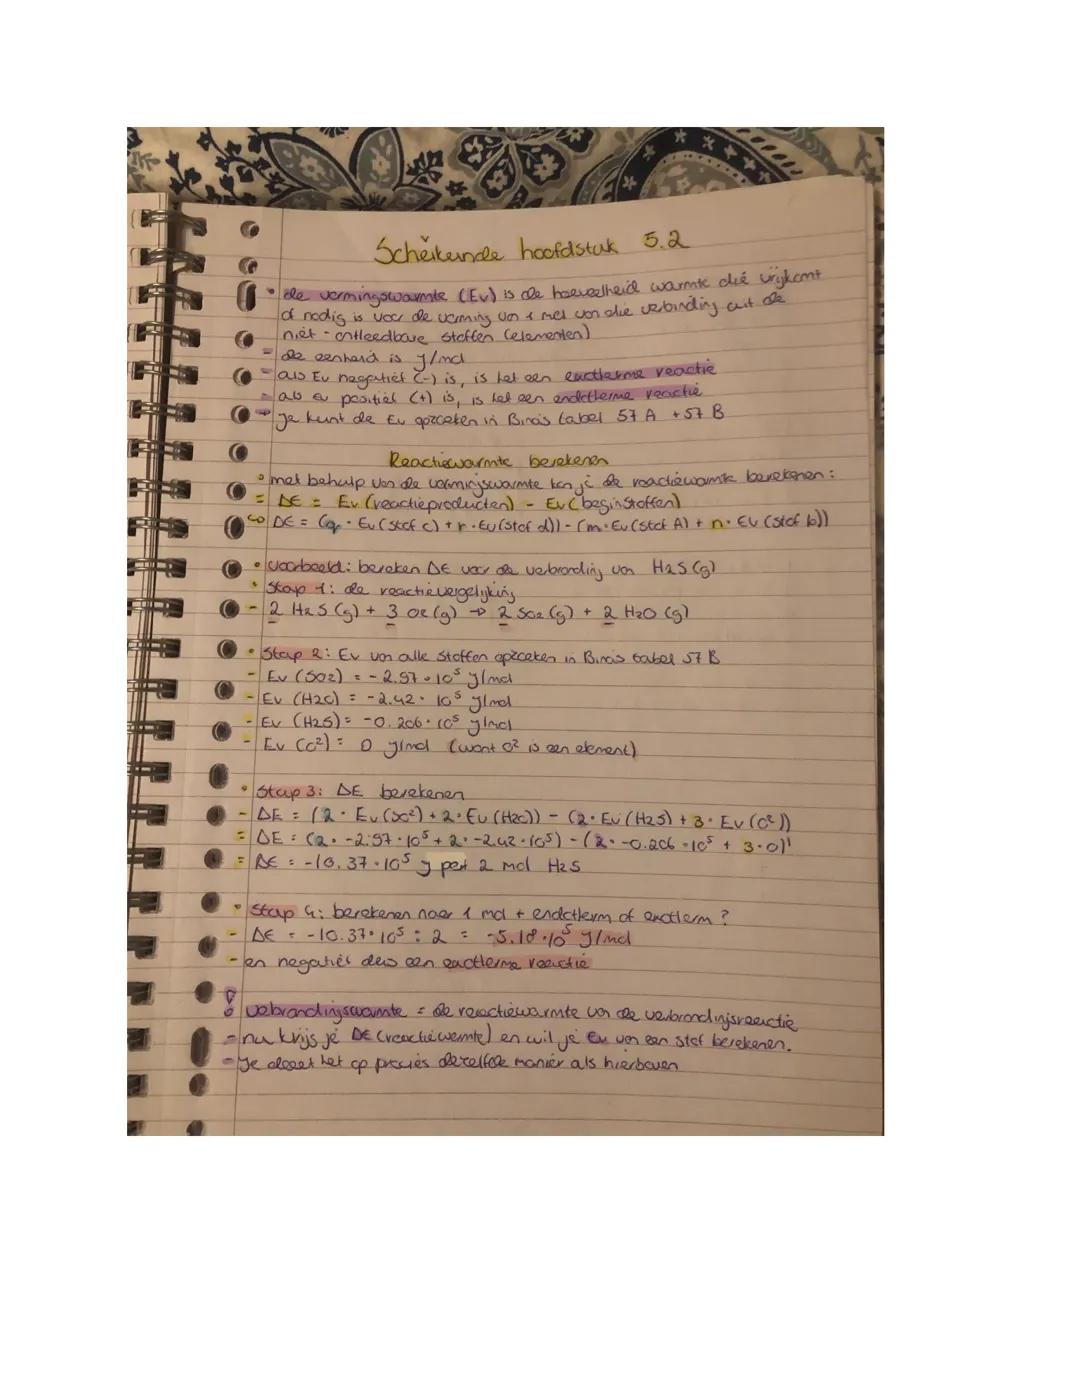 Scheikunde hoofdstuk 5.2
• de vormingswarmte (Ev) is de hoeveelheid warmte die vrijkomt
of nodig is voor de vorming van 1 mol van die verbinding uit de
niet-ontleedbare stoffen (elementen)
- de eenheid is J/mol
- als Ev negatief (-) is, is het een exotherme reactie
- als Ev positief (+) is, is het een endotherme reactie
→ Je kunt de Ev opzoeken in Binas tabel 57 A + 57 B
Reactiewarmte berekenen
• met behulp van de vormingswarmte kan je de reactiewarmte berekenen:
= ΔE = Ev (reactieproducten) - Ev (beginstoffen)
↪ ΔE = (q • Ev (stof c) + r • Ev (stof d)) - (m • Ev (stof A) + n • Ev (stof b))
• voorbeeld: bereken ΔE voor de verbranding van H2S (g)
• Stap 1: de reactievergelijking
- 2 H2S (g) + 3 O2 (g) → 2 SO2 (g) + 2 H2O (g)
• Stap 2: Ev van alle stoffen opzoeken in Binas tabel 57 B
- Ev (SO2) = -2.97 • 10⁵ J/mol
- Ev (H2O) = -2.42 • 10⁵ J/mol
- Ev (H2S) = -0.206 • 10⁵ J/mol
- Ev (O²) = 0 J/mol (want O² is een element)
• Stap 3: ΔE berekenen
- ΔE = (2 • Ev (SO²) + 2 • Ev (H2O)) - (2 • Ev (H2S) + 3 • Ev (O²))
= ΔE = (2 • -2.97 • 10⁵ + 2 • -2.42 • 10⁵) - (2 • -0.206 • 10⁵ + 3 • 0)
= ΔE = -10.37 • 10⁵ J per 2 mol H2S
• Stap 4: berekenen naar 1 mol + endotherm of exotherm?
- ΔE = -10.37 • 10⁵ : 2 = -5.18 • 10⁵ J/mol
- en negatief dus een exotherme reactie
! verbrandingswarmte = de reactiewarmte van de verbrandingsreactie
- nu krijg je ΔE (reactiewarmte) en wil je Ev van een stof berekenen.
- Je doet het op precies dezelfde manier als hierboven